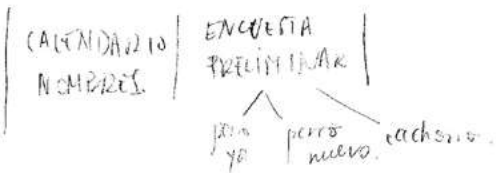 CALENDARIO
NOMBRES.
ENCUESTA
PRELIMINAR
perro
ya
perro
nuevo.
cachorro.